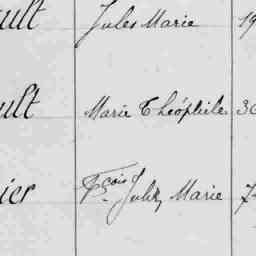 ult Jules Marie 19
ult Marie Théophile 30
ier Fçois Jules Marie 7